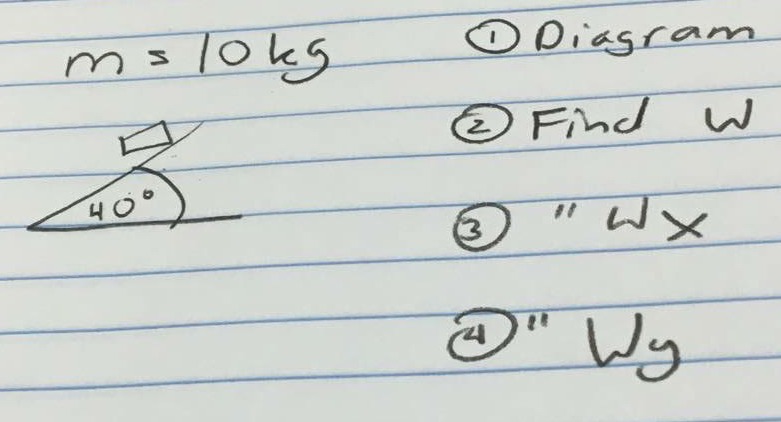 m = 10 kg
① Diagram
② Find W
③ " Wx
40°
④ " Wy